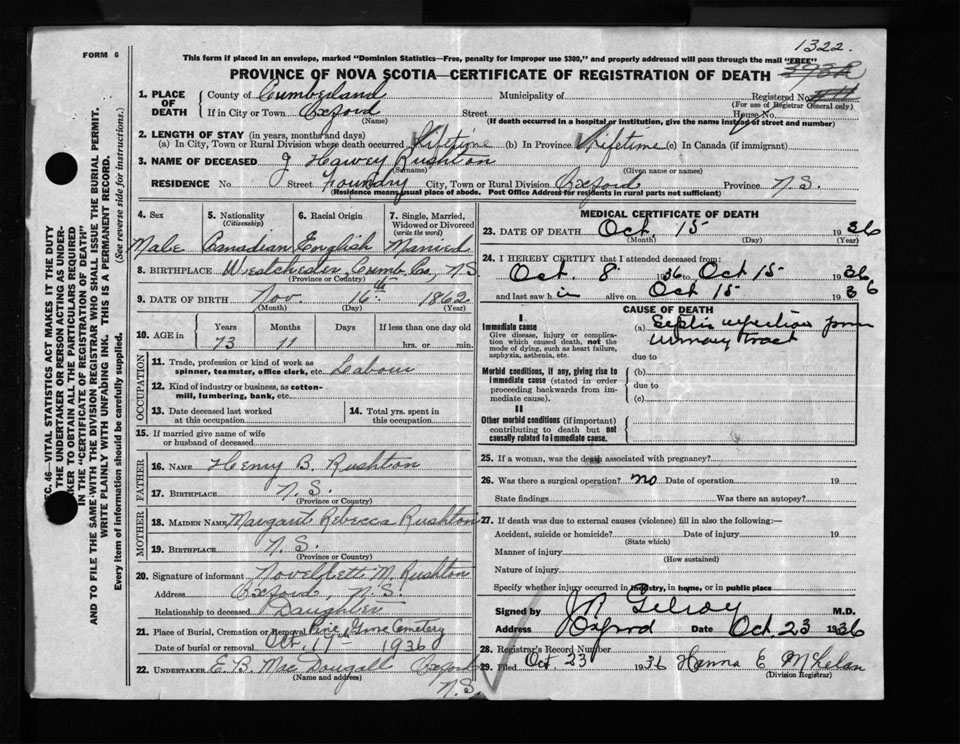 FORM 6
1322.
This form if placed in an envelope, marked "Dominion Statistics—Free, penalty for improper use $300," and properly addressed will pass through the mail "FREE"
PROVINCE OF NOVA SCOTIA—CERTIFICATE OF REGISTRATION OF DEATH
1. PLACE OF DEATH County of Cumberland Municipality of Registered No.
(For use of Registrar General only)
If in City or Town Oxford Street House No.
(Name) (If death occurred in a hospital or institution, give the name instead of street and number)
2. LENGTH OF STAY (in years, months and days)
(a) In City, Town or Rural Division where death occurred Lifetime (b) In Province Lifetime (c) In Canada (if immigrant)
3. NAME OF DECEASED J Harvey Rushton
(Surname) (Given name or names)
RESIDENCE No. Street Foundry City, Town or Rural Division Oxford Province N.S.
(Residence means usual place of abode. Post Office Address for residents in rural parts not sufficient)
4. Sex 5. Nationality (Citizenship) 6. Racial Origin 7. Single, Married, Widowed or Divorced (write the word)
Male Canadian English Married
8. BIRTHPLACE Westchester, Cumb. Co., N.S.
(Province or Country)
9. DATE OF BIRTH Nov. 16th 1862
(Month) (Day) (Year)
10. AGE in Years Months Days If less than one day old
73 11 hrs. or min.
OCCUPATION
11. Trade, profession or kind of work as spinner, teamster, office clerk, etc. Labour
12. Kind of industry or business, as cotton-mill, lumbering, bank, etc.
13. Date deceased last worked at this occupation 14. Total yrs. spent in this occupation
15. If married give name of wife or husband of deceased
FATHER
16. NAME Henry B. Rushton
17. BIRTHPLACE N.S.
(Province or Country)
MOTHER
18. MAIDEN NAME Margaret Rebecca Rushton
19. BIRTHPLACE N.S.
(Province or Country)
20. Signature of informant M. Rushton
Address Oxford, N.S.
Relationship to deceased Daughter
21. Place of Burial, Cremation or Removal Pine Grove Cemetery
Date of burial or removal Oct. 17th 1936
22. UNDERTAKER E. B. MacDougall Oxford
(Name and address) N.S.
MEDICAL CERTIFICATE OF DEATH
23. DATE OF DEATH Oct. 15 1936
(Month) (Day) (Year)
24. I HEREBY CERTIFY that I attended deceased from:
Oct. 8 1936 to Oct 15 1936
and last saw him alive on Oct 15 1936
CAUSE OF DEATH
I
Immediate cause
Give disease, injury or complication which caused death, not the mode of dying, such as heart failure, asphyxia, asthenia, etc.
(a) Septic infection from
urinary tract
due to
Morbid conditions, if any, giving rise to immediate cause (stated in order proceeding backwards from immediate cause).
(b)
due to
(c)
II
Other morbid conditions (if important) contributing to death but not causally related to immediate cause.
25. If a woman, was the death associated with pregnancy?
26. Was there a surgical operation? no Date of operation 19
State findings Was there an autopsy?
27. If death was due to external causes (violence) fill in also the following:—
Accident, suicide or homicide? Date of injury 19
(State which)
Manner of injury
(How sustained)
Nature of injury
Specify whether injury occurred in industry, in home, or in public place
Signed by Gilroy M.D.
Address Oxford Date Oct. 23 1936
28. Registrar's Record Number
29. Filed Oct. 23 1936 Hanna E McLelan
(Division Registrar)
SEC. 46—VITAL STATISTICS ACT MAKES IT THE DUTY
OF THE UNDERTAKER OR PERSON ACTING AS UNDERTAKER TO OBTAIN ALL THE PARTICULARS REQUIRED
IN THE "CERTIFICATE OF REGISTRATION OF DEATH"
AND TO FILE THE SAME WITH THE DIVISION REGISTRAR WHO SHALL ISSUE THE BURIAL PERMIT.
WRITE PLAINLY WITH UNFADING INK. THIS IS A PERMANENT RECORD.
Every item of information should be carefully supplied. (See reverse side for instructions.)